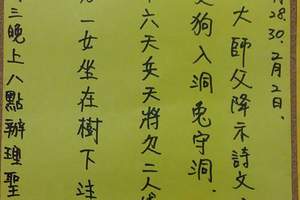 月28.30.2月2日、
大師父降示詩文
狗入洞兔守洞.
六天兵天將欠二人
一女坐在樹下
三晚上八點辦理聖